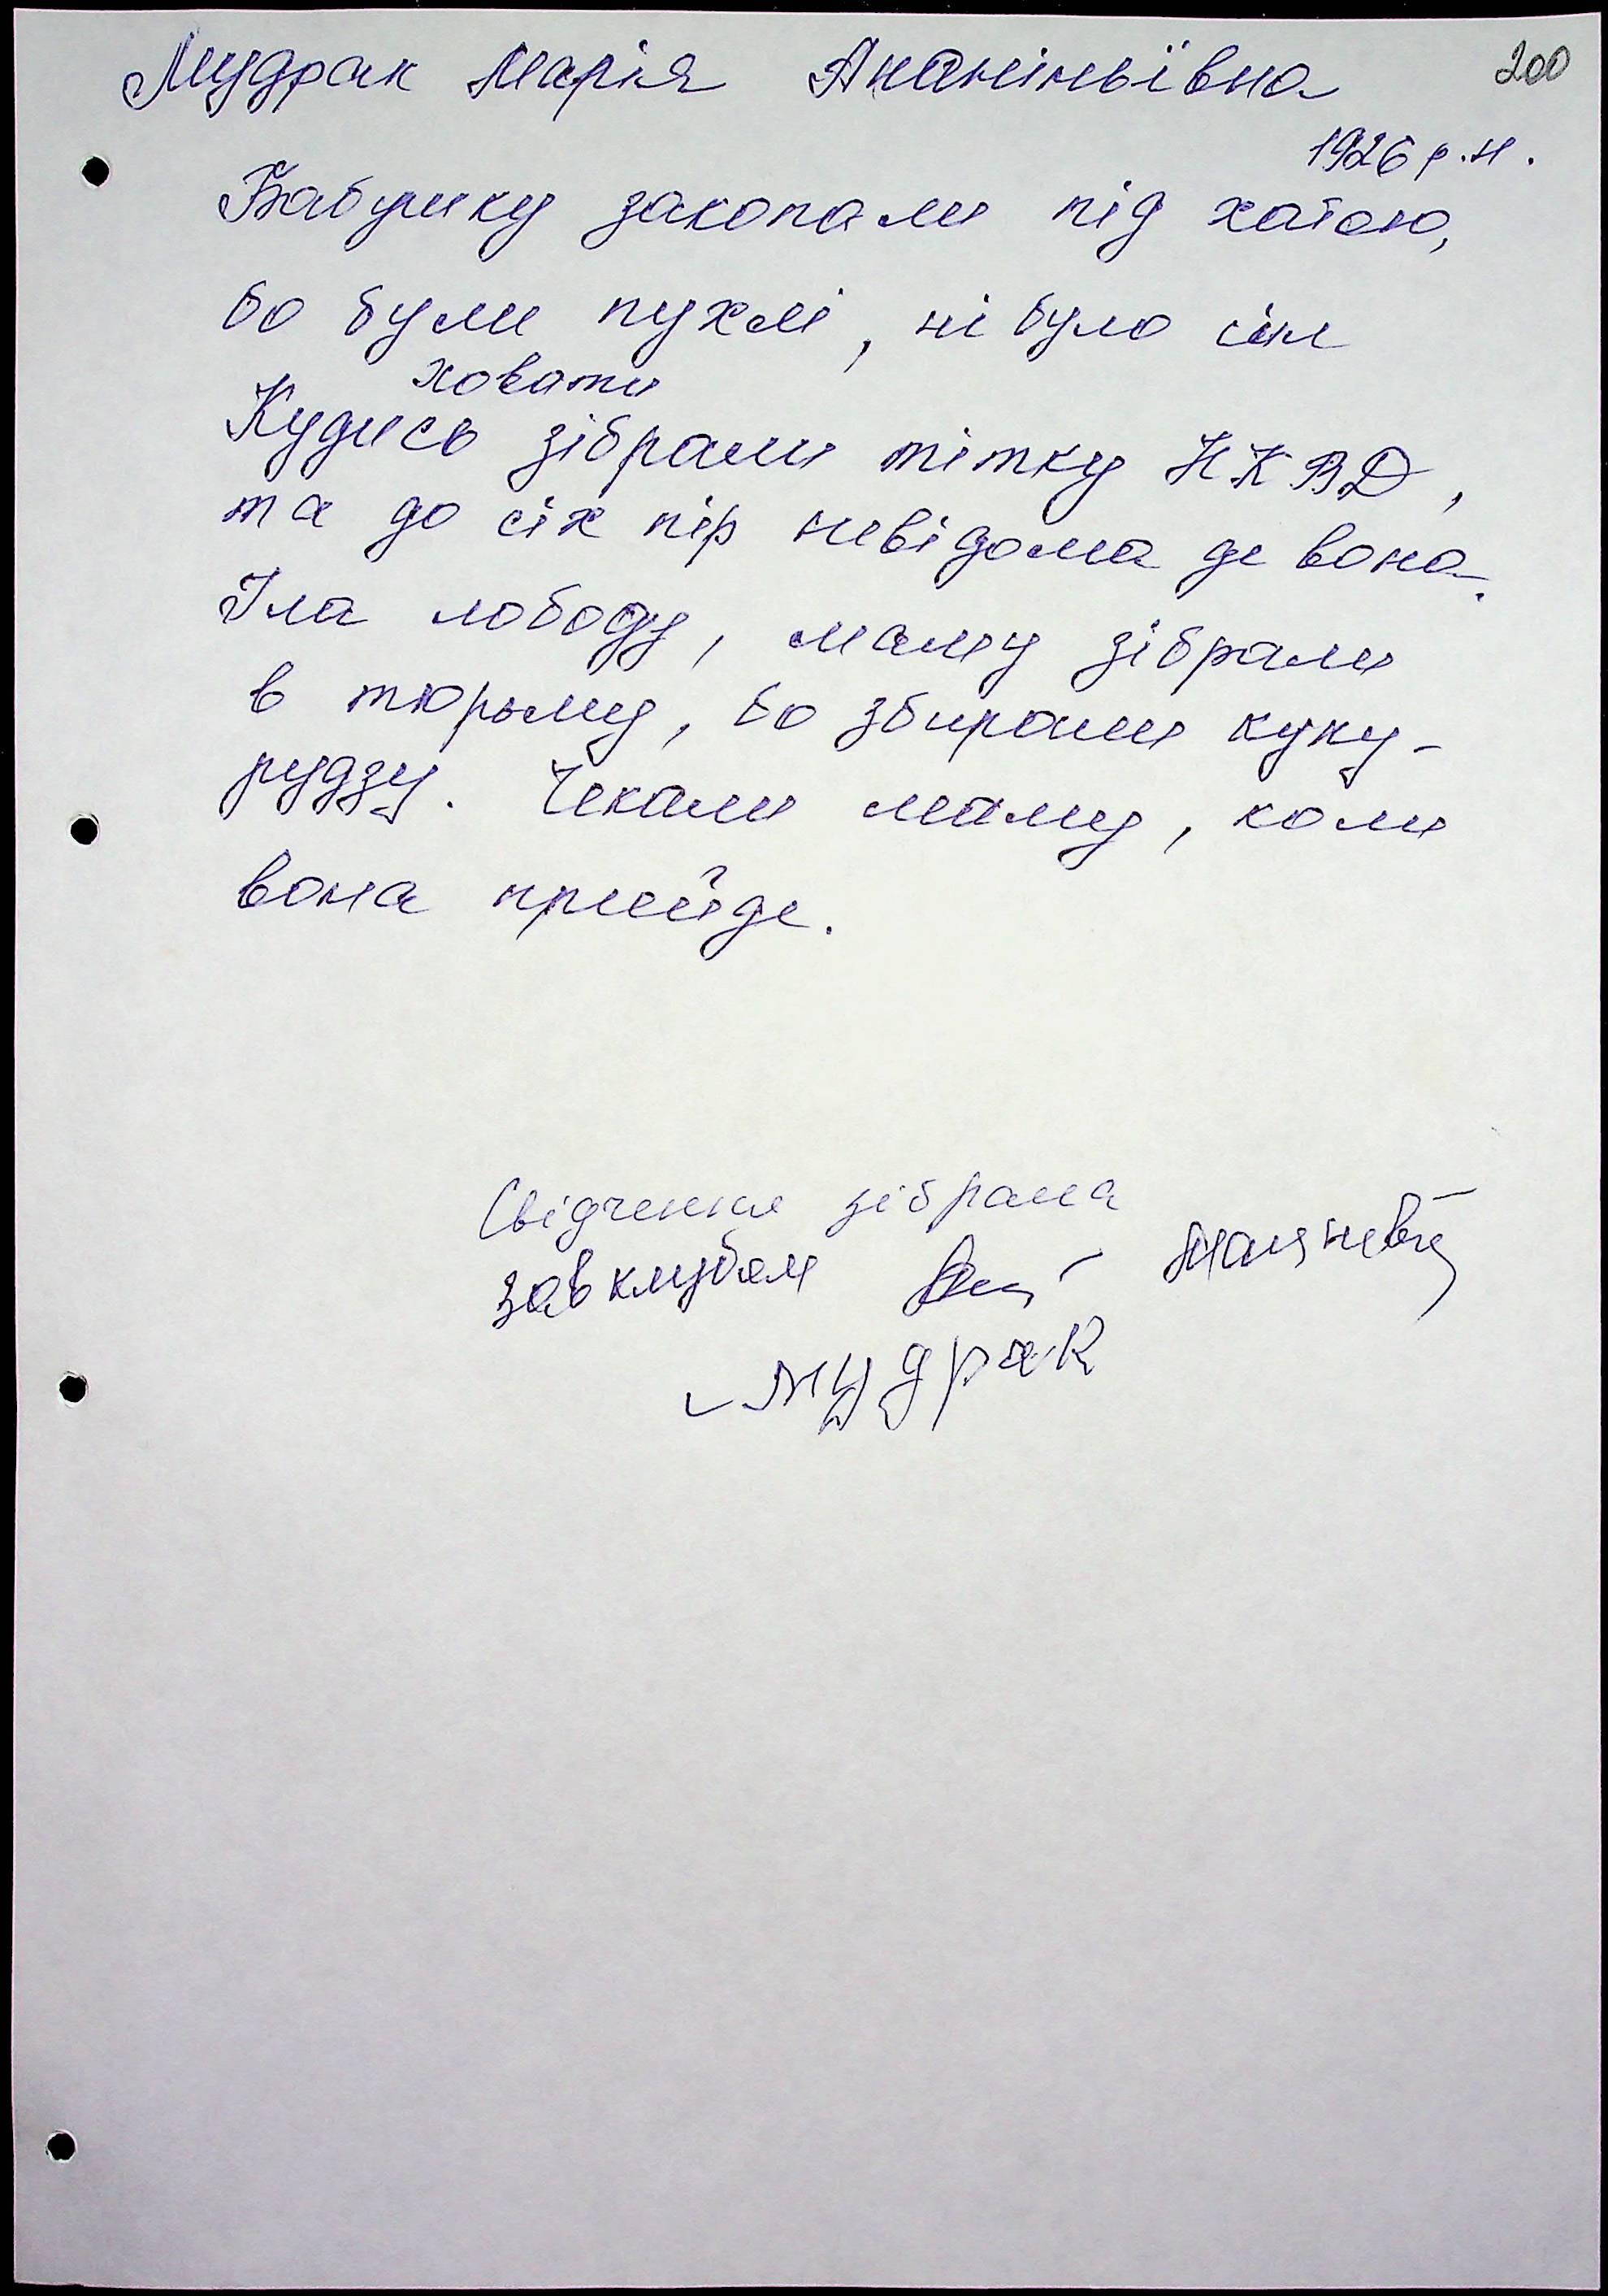 200
Мудрак Марія Ананіньївна
1926 р.н.
Бабушку закопали під хатою,
бо були пухлі, ні було сил
ховати
Кудись зібрали тітку НКВД,
та до сіх пір невідома де вона.
Їла лободу, маму зібрали
в тюрьму, бо збирали куку-
рудзу. Чекали маму, коли
вона прийде.
Свідчення зібрала
зав клубом
Мудрак